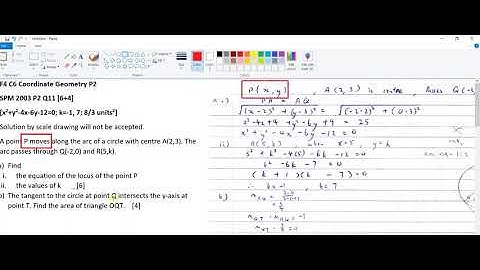 F4 C6 Coordinate Geometry P2
SPM 2003 P2 Q11 [6+4]
[x²+y²-4x-6y-12=0; k=-1, 7; 8/3 units²]
Solution by scale drawing will not be accepted.
A point P moves along the arc of a circle with centre A(2,3). The
arc passes through Q(-2,0) and R(5,k).
a) Find
i. the equation of the locus of the point P
ii. the values of k _[6]
b) The tangent to the circle at point Q intersects the y-axis at
point T. Find the area of triangle OQT. [4]
P(x,y), A(2,3) is centre,
a i) PA = AQ
√(x-2)²+(y-3)² = √(-2-2)²+(0-3)²
x²-4x+4+y²-6y+9 = 25
x²+y²-4x-6y-12=0
ii) x=5, y=k
5²+k²-4(5)-6k-12=0
k²-6k-7=0
(k+1)(k-7)=0
k=-1, k=7
b)